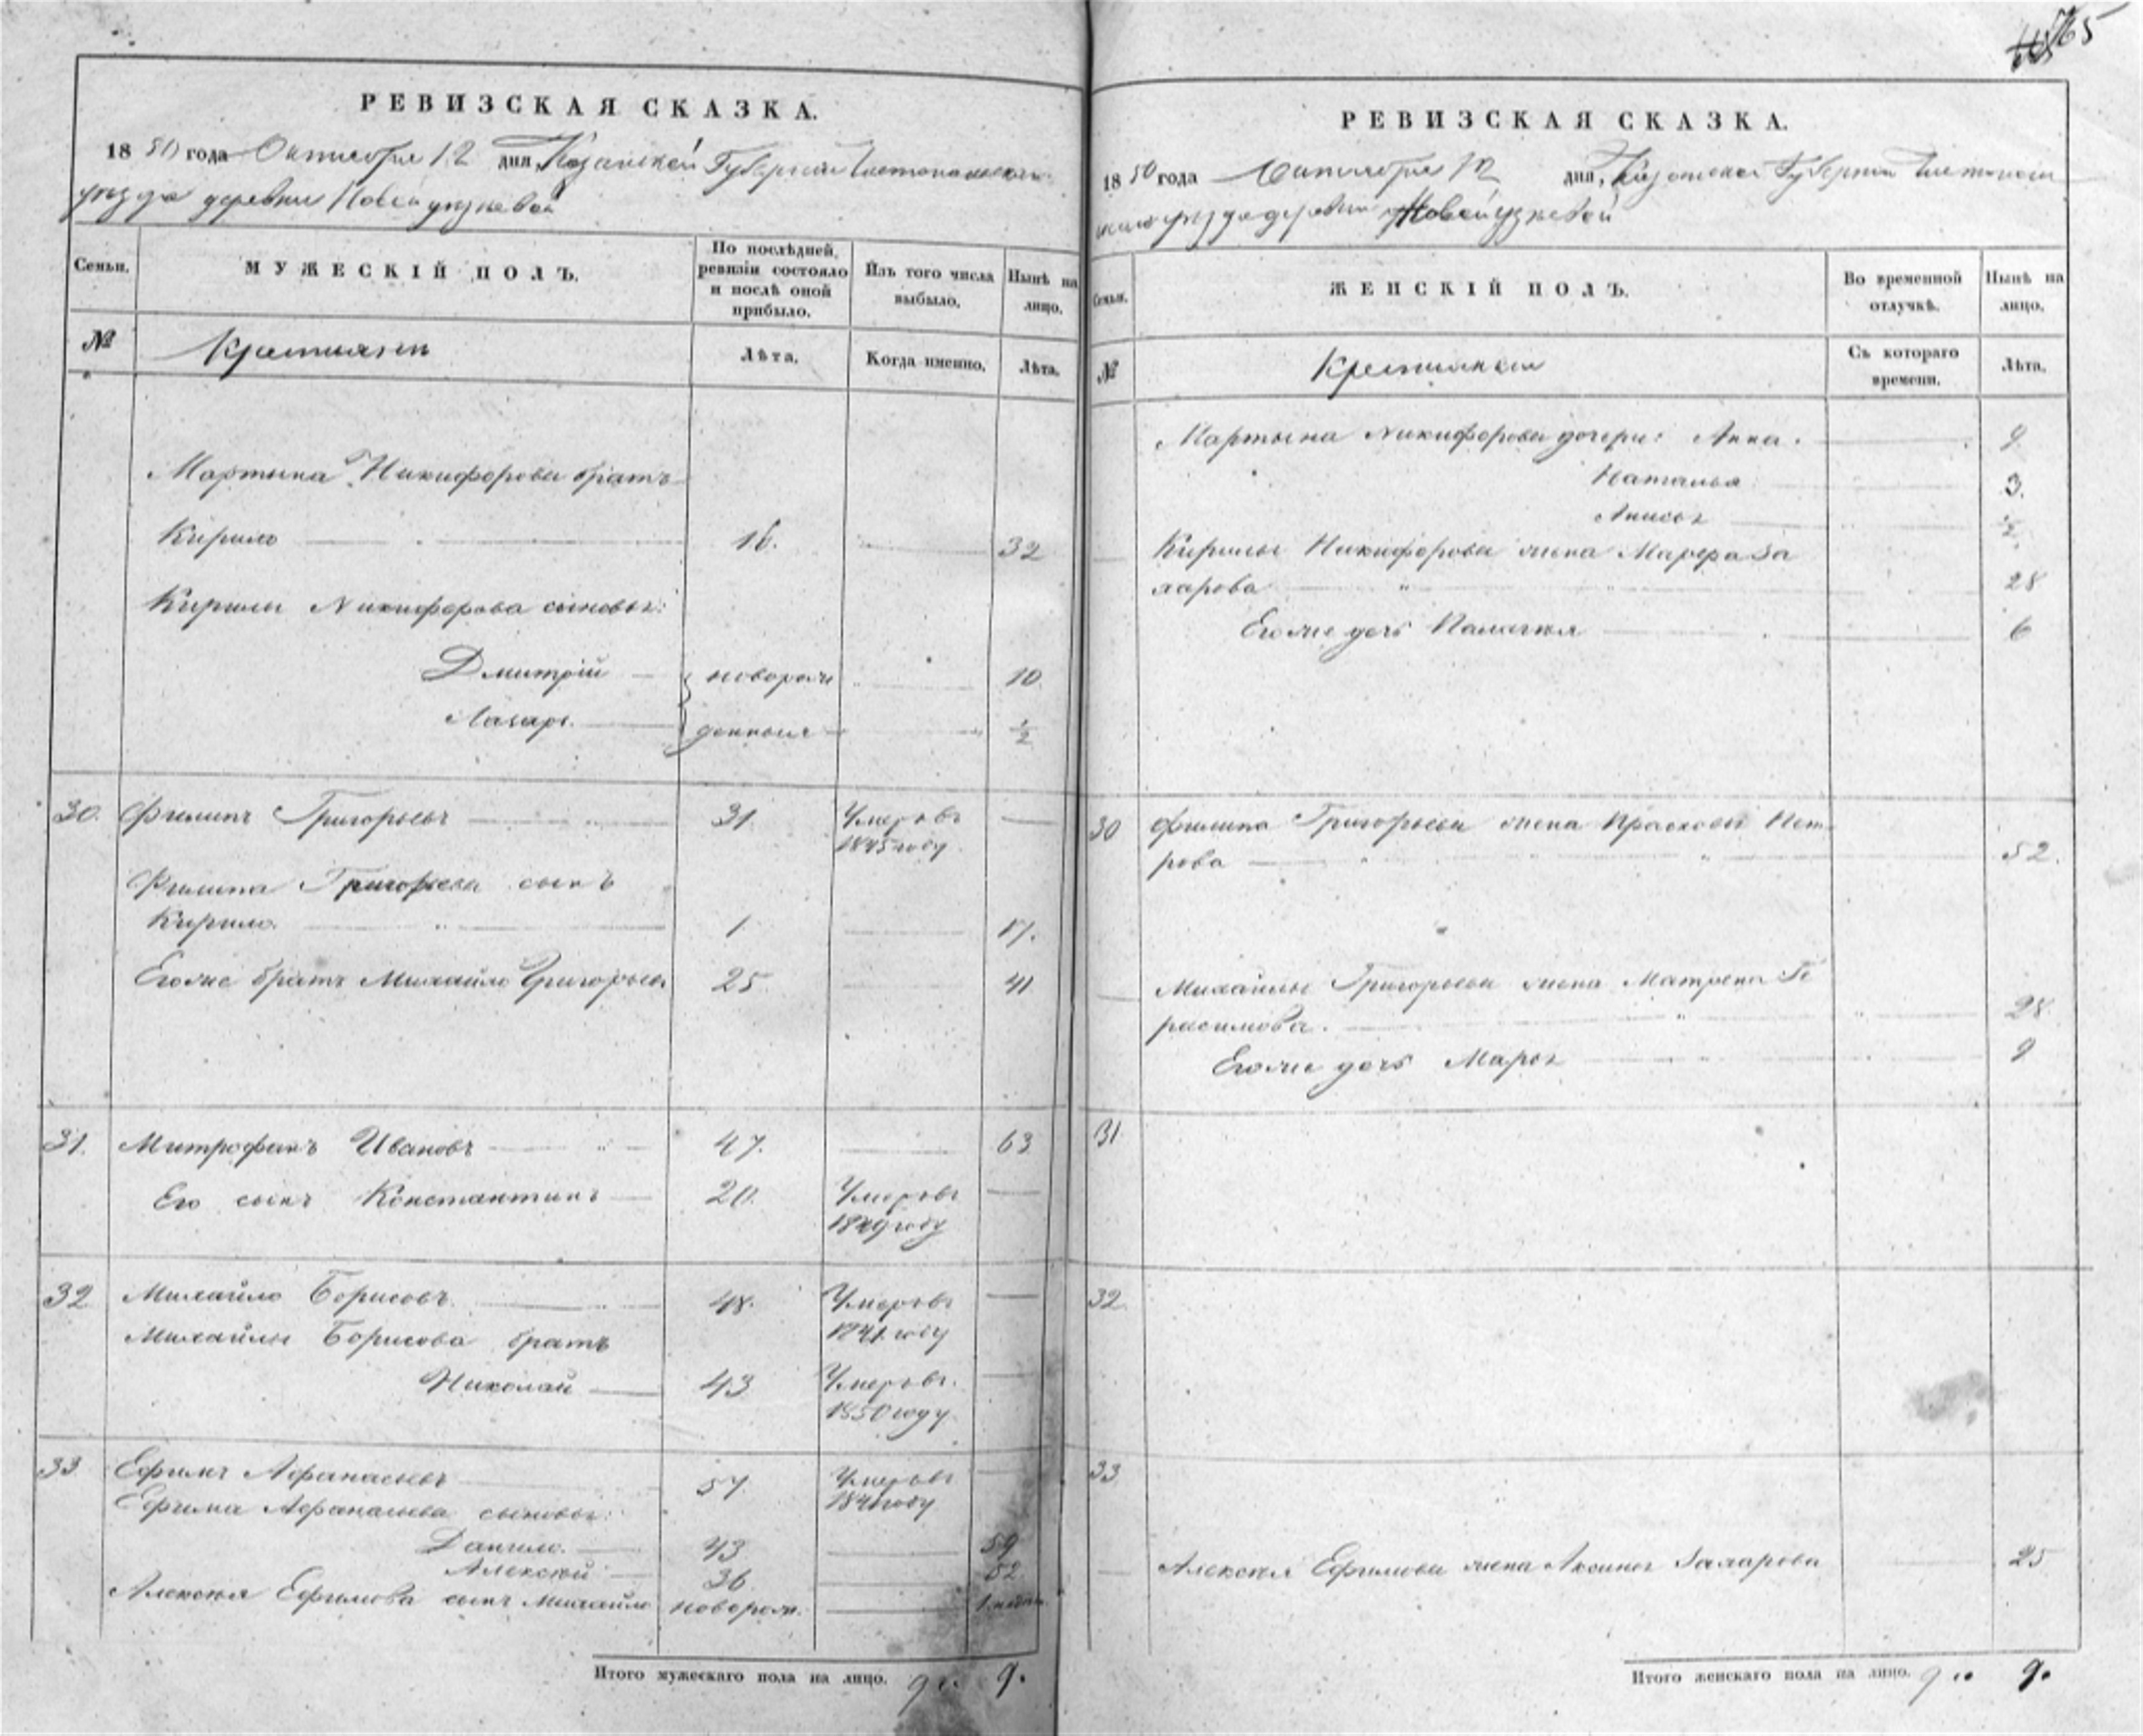 765
РЕВИЗСКАЯ СКАЗКА.
1850 года Октября 12 дня, Казанской Губернии Чистопольскаго
уезда деревни Новой
Семьи.
МУЖЕСКІЙ ПОЛЪ.
По послѣдней ревизіи состояло и послѣ оной прибыло.
Изъ того числа выбыло.
Нынѣ на лицо.
№
Крестьянъ
Лѣта.
Когда именно.
Лѣта.
Мартына Никифорова братъ
Кирило 16. 32
Кирилы Никифорова сыновья:
Дмитрій новорож 10
Лазарь денныя ½
30. Филипъ Григорьевъ 31. Умеръ въ
1845 году
Филипа Григорьева сынъ
Кирило. 1 17.
Егоже братъ Михайло Григорьевъ 25 41
31. Митрофанъ Ивановъ 47. 63
Его сынъ Константинъ 20. Умеръ въ
1849 году
32 Михайло Борисовъ 48. Умеръ въ
1841 году
Михайлы Борисова братъ
Николай 43 Умеръ въ
1850 году
33 Ефимъ Афанасьевъ 57. Умеръ въ
184 году
Ефима Афанасьева сыновья:
Данило. 43 59
Алексѣй 36 52
Алексѣя Ефимова сынъ Михайло новорож.
Итого мужескаго пола на лицо. 9. 9.
РЕВИЗСКАЯ СКАЗКА.
1850 года Октября 12 дня, Казанской Губернии Чистополь
скаго уезда деревни Новой
Семьи.
ЖЕНСКІЙ ПОЛЪ.
Во временной отлучкѣ.
Нынѣ на лицо.
№
Крестьянки
Съ котораго времени.
Лѣта.
Мартына Никифорова дочери: Анна. 9
Наталья 3.
Анисья ½
Кирилы Никифорова жена Марфа За
харова 28
Егоже дочь Палагея 6
30 Филипа Григорьева жена Прасковья Пет
рова 52.
Михайлы Григорьева жена Матрена Ге
расимова. 28.
Егоже дочь Марья 9
31
32.
33.
Алексѣя Ефимова жена Аксинья Захарова 25
Итого женскаго пола на лицо. 9 9.